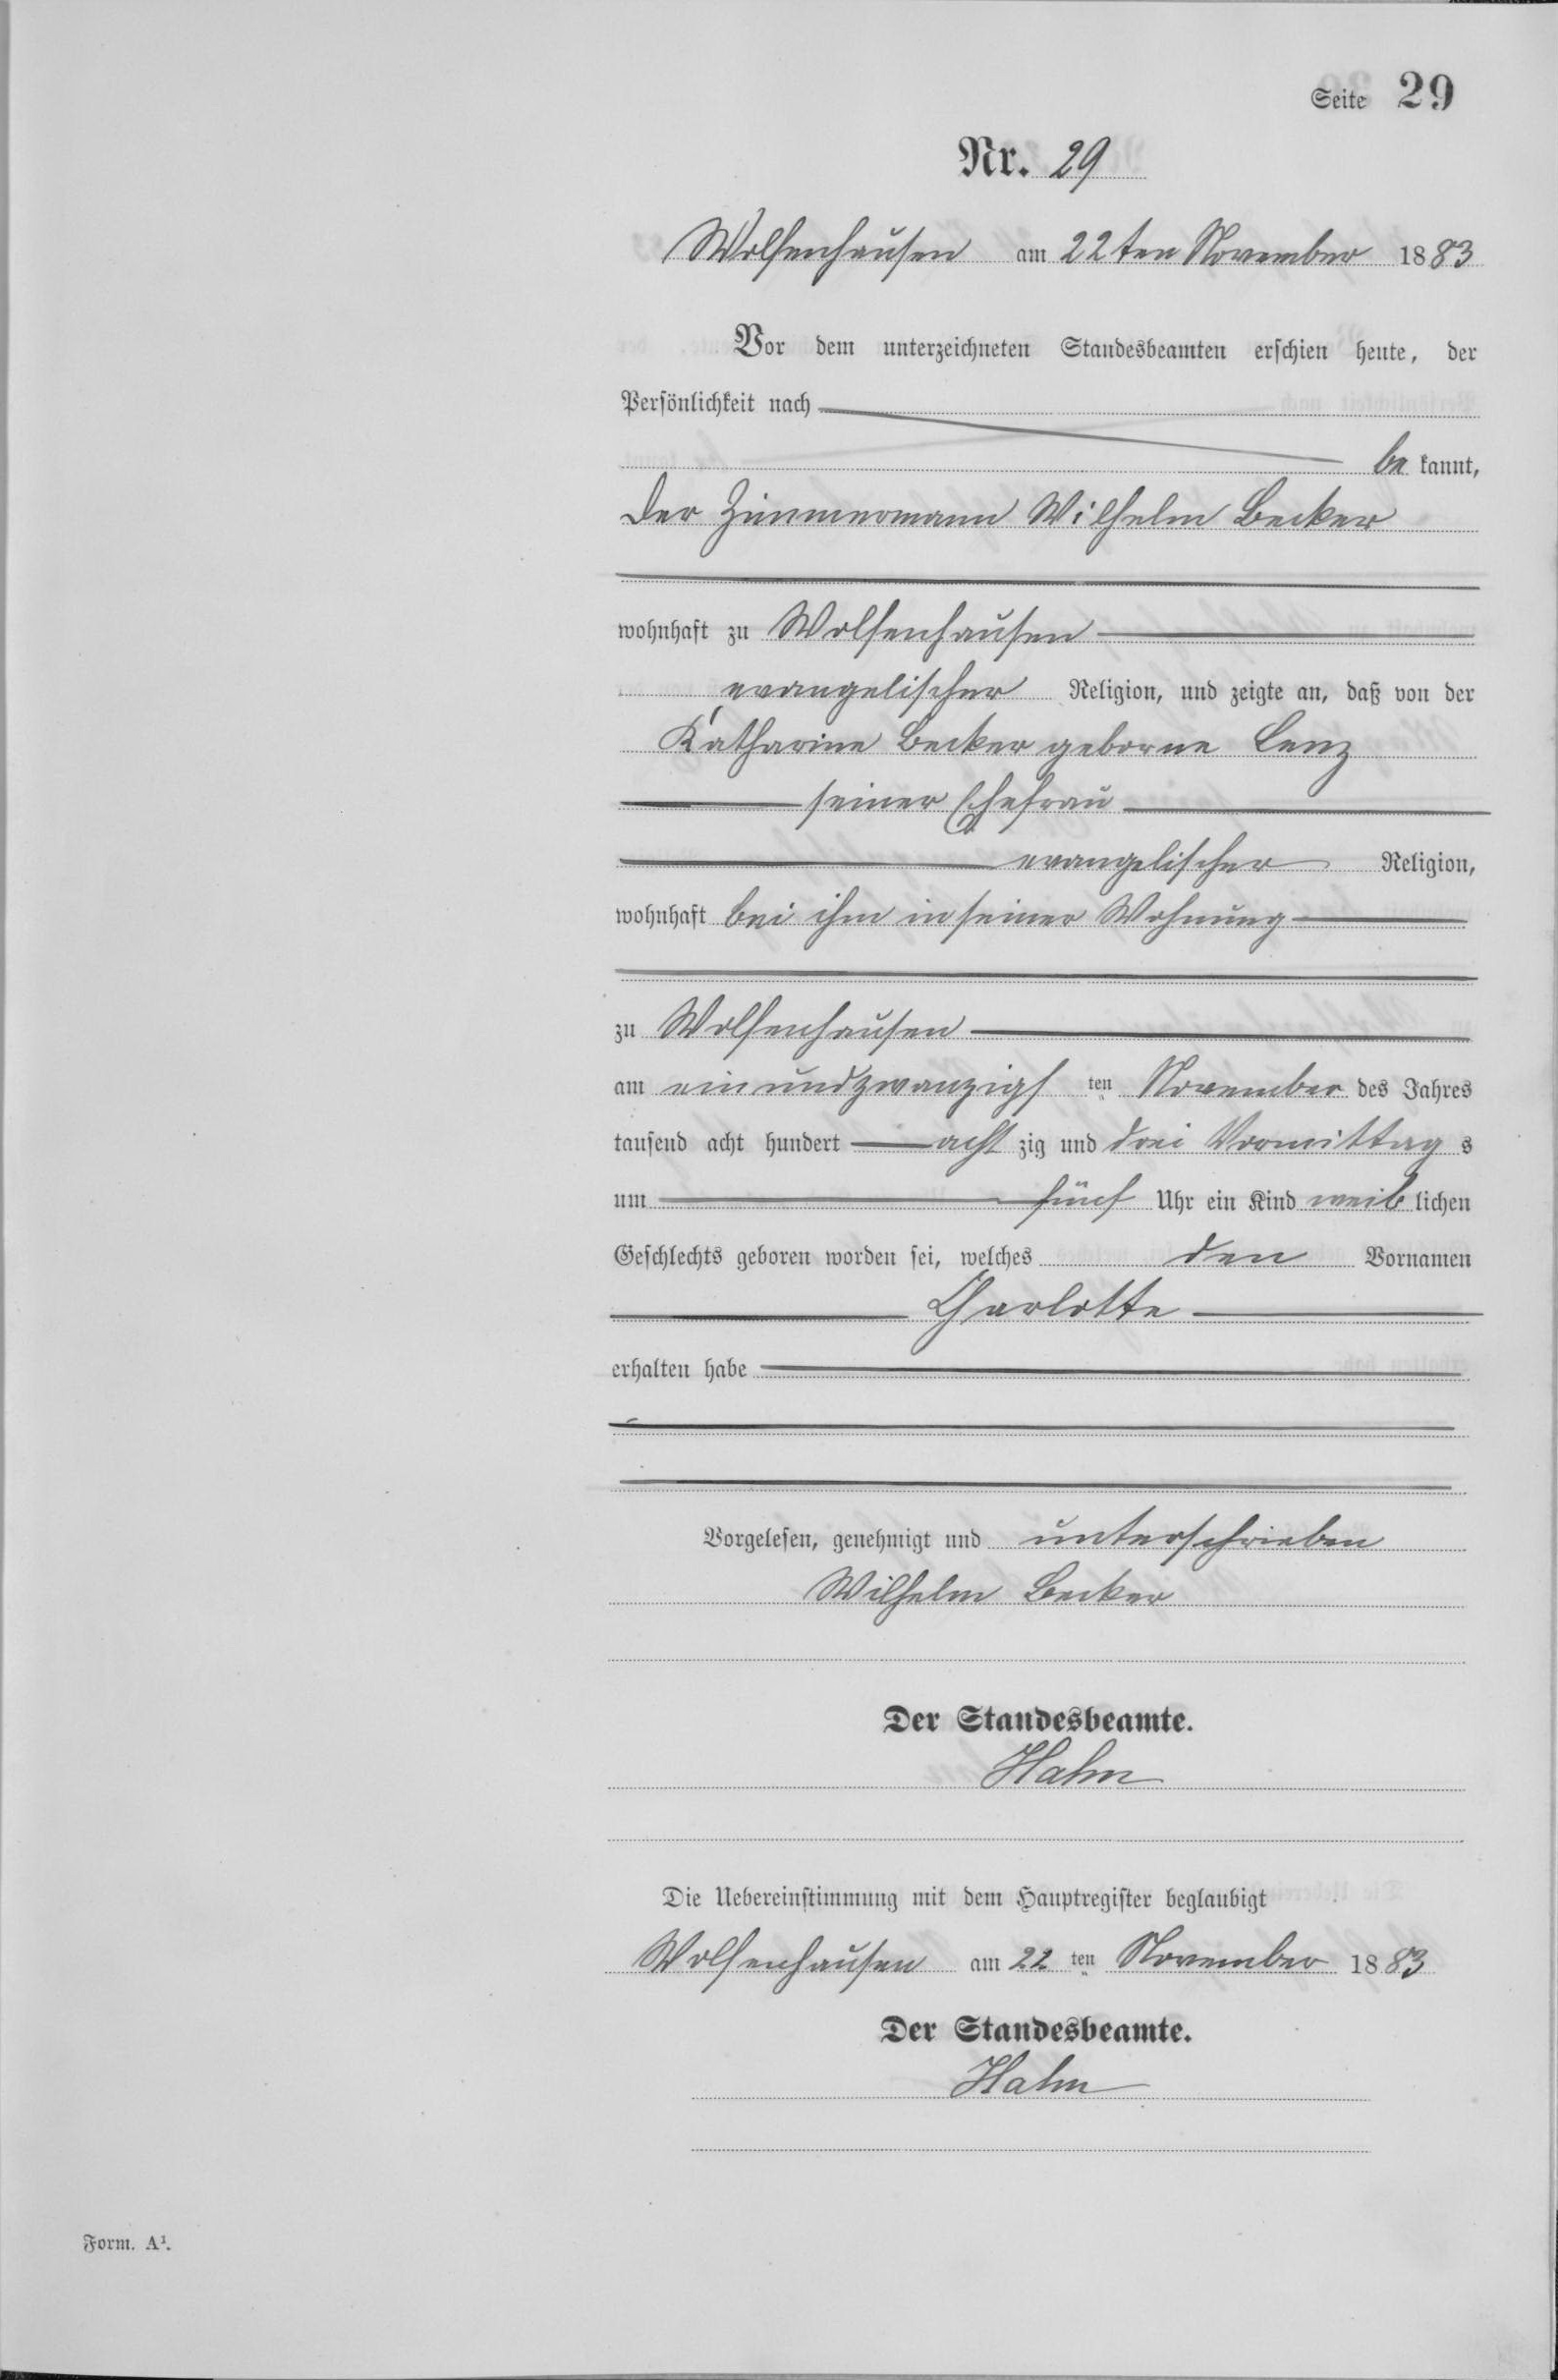 Seite 29
Nr. 29
Wolfenhausen am 22ten November 1883
Vor dem unterzeichneten Standesbeamten erschien heute, der
Persönlichkeit nach
be kannt,
der Zimmermann Wilhelm Becker
wohnhaft zu Wolfenhausen
evangelischer Religion, und zeigte an, daß von der
Katharine Becker geborne Lenz
seiner Ehefrau
evangelischer Religion,
wohnhaft bei ihm in seiner Wohnung
zu Wolfenhausen
am einundzwanzigs ten November des Jahres
tausend acht hundert acht zig und drei Vormittag s
um fünf Uhr ein Kind weib lichen
Geschlechts geboren worden sei, welches den Vornamen
Charlotte
erhalten habe
Vorgelesen, genehmigt und unterschrieben
Wilhelm Becker
Der Standesbeamte.
Hahn
Die Uebereinstimmung mit dem Hauptregister beglaubigt
Wolfenhausen am 22 ten November 1883
Der Standesbeamte.
Hahn
Form. A¹.